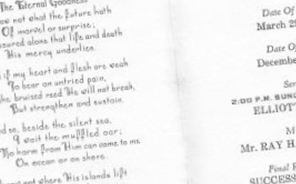 The Eternal Goodness
know not what the future hath
Of marvel or surprise;
ssured alone that life and death
His mercy underlies.
if my heart and flesh are weak
To bear an untried pain,
he bruised reed He will not break,
But strengthen and sustain.
nd so, beside the silent sea,
I wait the muffled oar;
No harm from Him can come to me
On ocean or on shore.
not where His islands lift
Date Of
March 2
Date O
Decembe
Ser
2:00 P.M. SUND
ELLIOT
M
Mr. RAY H
Final
SUCCESS